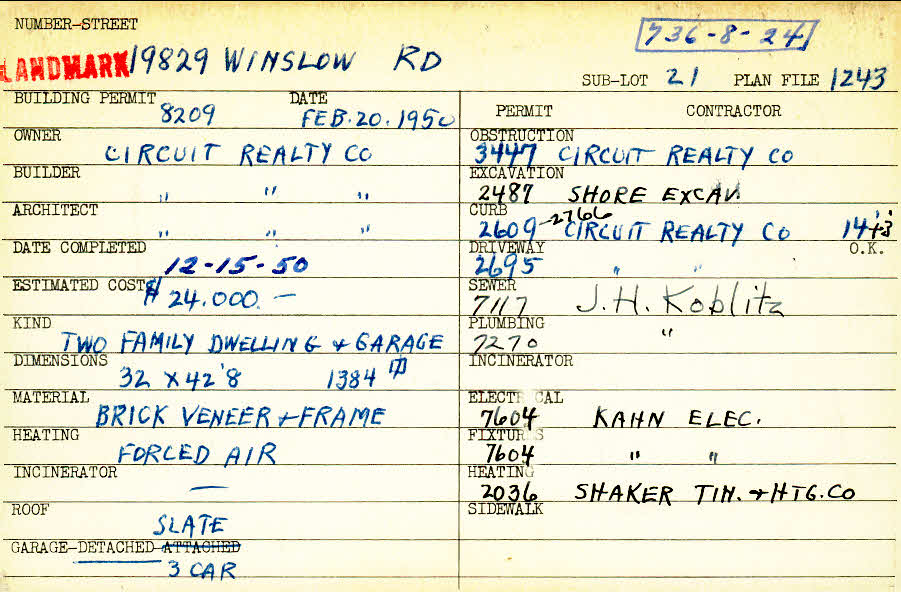 NUMBER-STREET
736-8-24
LANDMARK 19829 WINSLOW RD
SUB-LOT 21 PLAN FILE 1243
BUILDING PERMIT 8209 DATE FEB. 20. 1950
OWNER CIRCUIT REALTY CO
BUILDER " " "
ARCHITECT " " "
DATE COMPLETED 12-15-50
ESTIMATED COST $ 24.000. —
KIND TWO FAMILY DWELLING & GARAGE
DIMENSIONS 32 X 42'8 1384
MATERIAL BRICK VENEER & FRAME
HEATING FORCED AIR
INCINERATOR —
ROOF SLATE
GARAGE-DETACHED-ATTACHED
3 CAR
PERMIT CONTRACTOR
OBSTRUCTION 3447 CIRCUIT REALTY CO
EXCAVATION 2487 SHORE EXCAV.
CURB 2609-2766 CIRCUIT REALTY CO
O.K.
DRIVEWAY 2695 " "
SEWER 7117 J. H. Koblitz
PLUMBING 7270 "
INCINERATOR
ELECTRICAL 7604 KAHN ELEC.
FIXTURES 7604 " "
HEATING 2036 SHAKER TIN. & HTG. CO
SIDEWALK